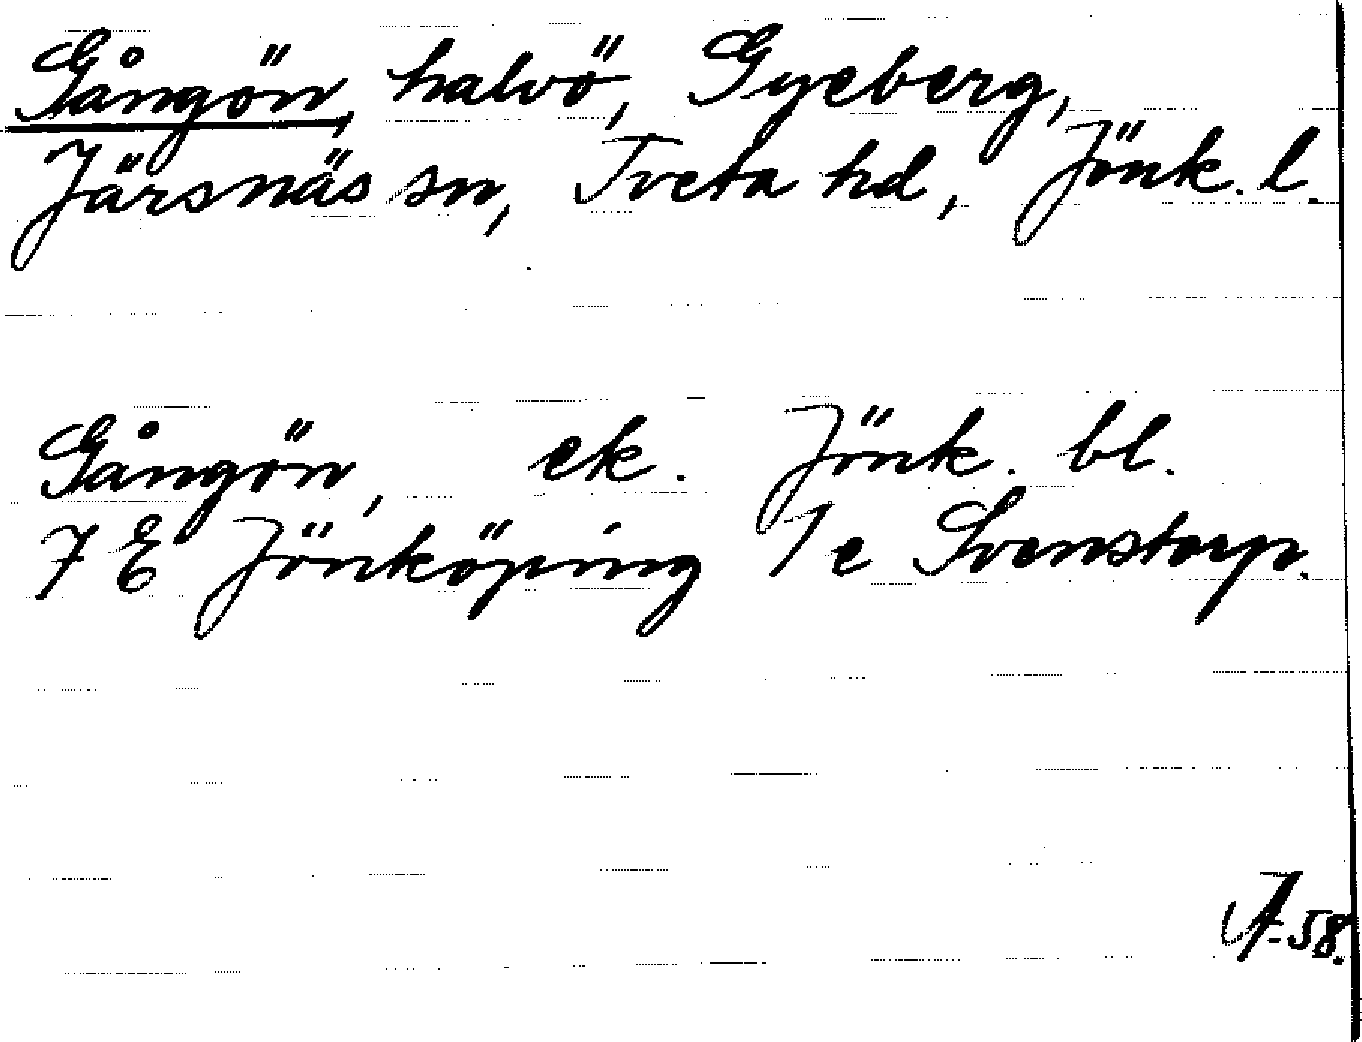 Gångön, halvö, Gyeberg,
Järsnäs sn, Tveta hd, Jönk. l.
Gångön, ek. Jönk. bl.
7 E Jönköping 1 e Svenstorp.
A-58.